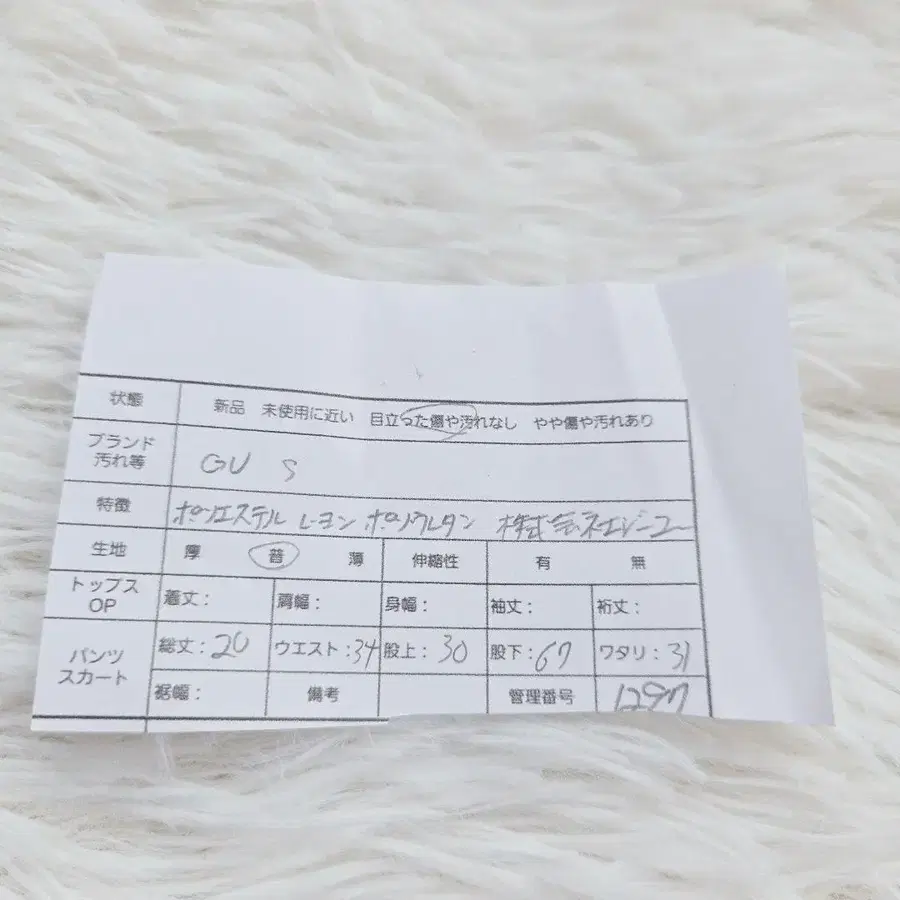 状態 新品 未使用に近い 目立った傷や汚れなし やや傷や汚れあり
ブランド
汚れ等 GU S
特徴 ポリエステル レーヨン ポリウレタン 株式会社ジーユー
生地 厚 普 薄 伸縮性 有 無
トップス
OP 着丈： 肩幅： 身幅： 袖丈： 裄丈：
パンツ
スカート 総丈：20 ウエスト：34 股上：30 股下：67 ワタリ：31
裾幅： 備考 管理番号 1297